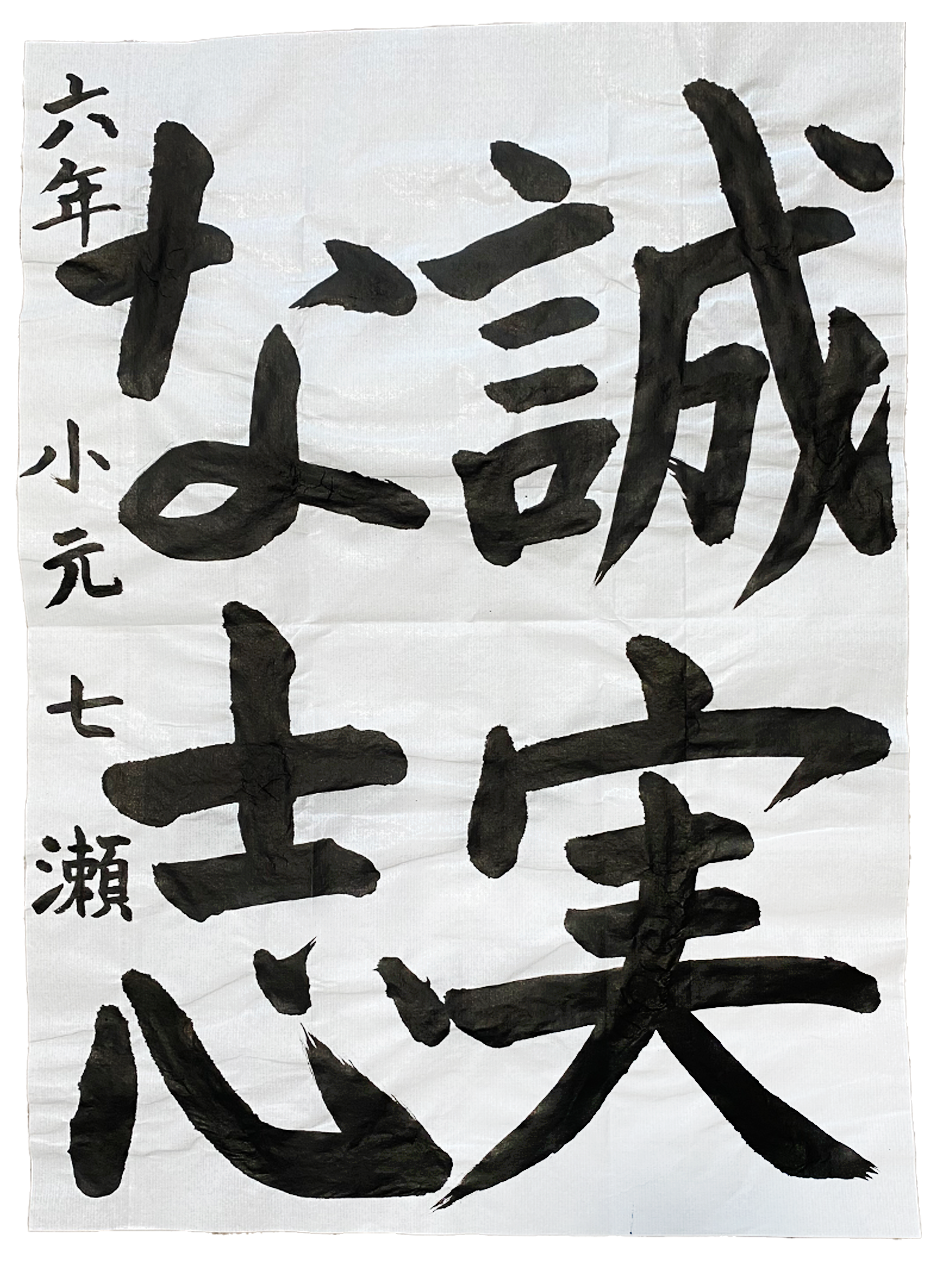 誠実
な志
六年 小元 七瀬